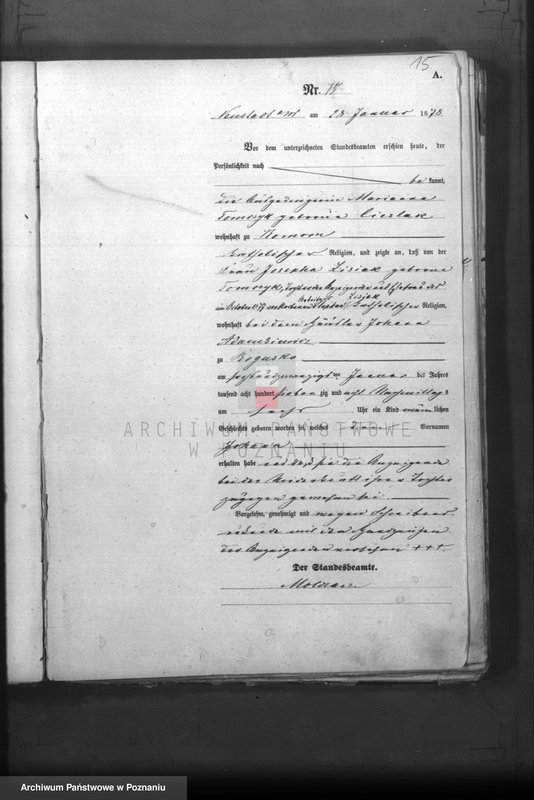 15
A.
Nr. 15
Neustadt a/W am 28 Januar 1878
Vor dem unterzeichneten Standesbeamten erschien heute, der
Persönlichkeit nach
be kannt,
die Ausgedingerin Marianna
Tomczyk geborene Cieslak
wohnhaft zu Komorze
katholischer Religion, und zeigte an, daß von der
Frau Josepha Lisiak geborene
Tomczyk, Tochter der Anzeigende und Ehefrau des
im October 1877 verstorbenen Arbeiters Lisiak katholischer Religion,
wohnhaft bei dem Häusler Johann
Adamkiewicz
zu Rogusko
am sechsundzwanzigsten Januar des Jahres
tausend acht hundert sieben zig und acht Nachmittags
um sechs Uhr ein Kind männlichen
Geschlechts geboren worden sei, welches den Vornamen
Johann
erhalten habe und daß sie die Anzeigende
bei der Niederkunft ihrer Tochter
zugegen gewesen sei.
Vorgelesen, genehmigt und wegen Schreibens-
unkunde mit den Handzeichen
der Anzeigenden versehen +++
Der Standesbeamte.
ARCHIWUM PAŃSTWOWE
W POZNANIU
Archiwum Państwowe w Poznaniu